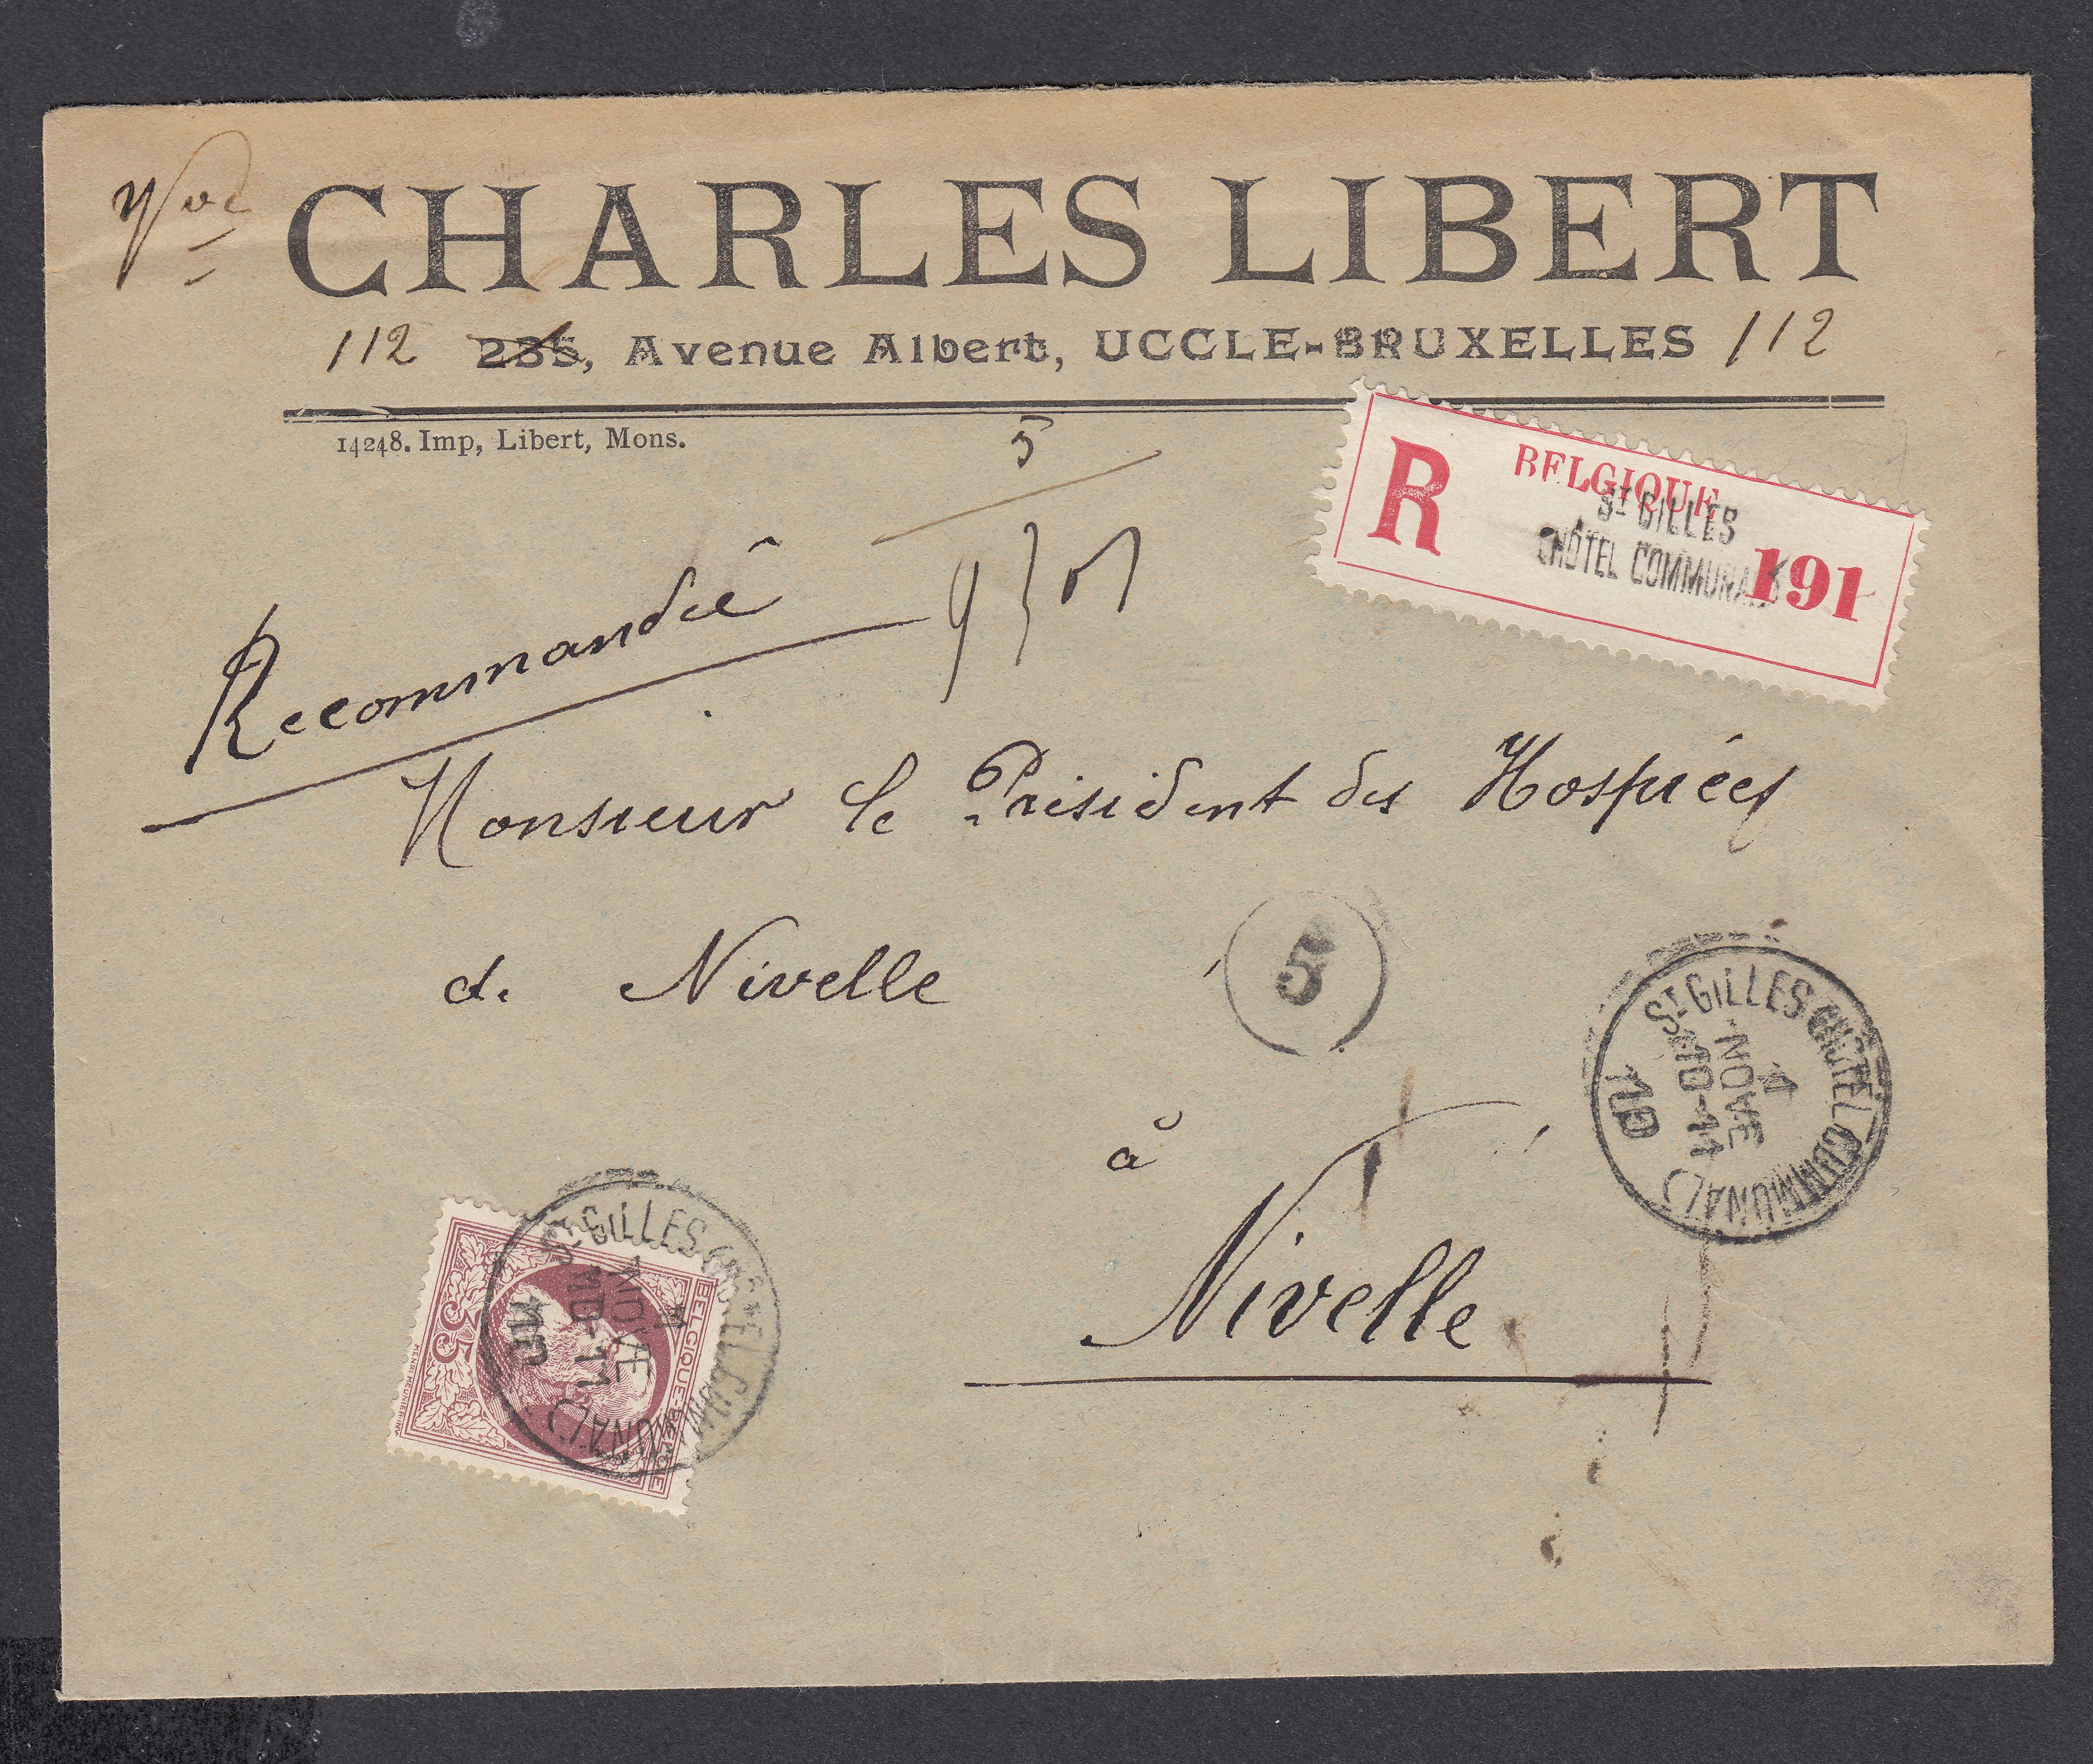 CHARLES LIBERT
112 235, Avenue Albert, UCCLE-BRUXELLES 112
14248. Imp, Libert, Mons.
5
R BELGIQUE
ST GILLES
(HÔTEL COMMUNAL)
191
Recommandée
Monsieur le Président des Hospices
de Nivelle
5
à
Nivelle
ST GILLES (HÔTEL COMMUNAL)
NOVE
10-11
BELGIQUE BELGIE
35
ST GILLES (HÔTEL COMMUNAL)
NOVE
10-11